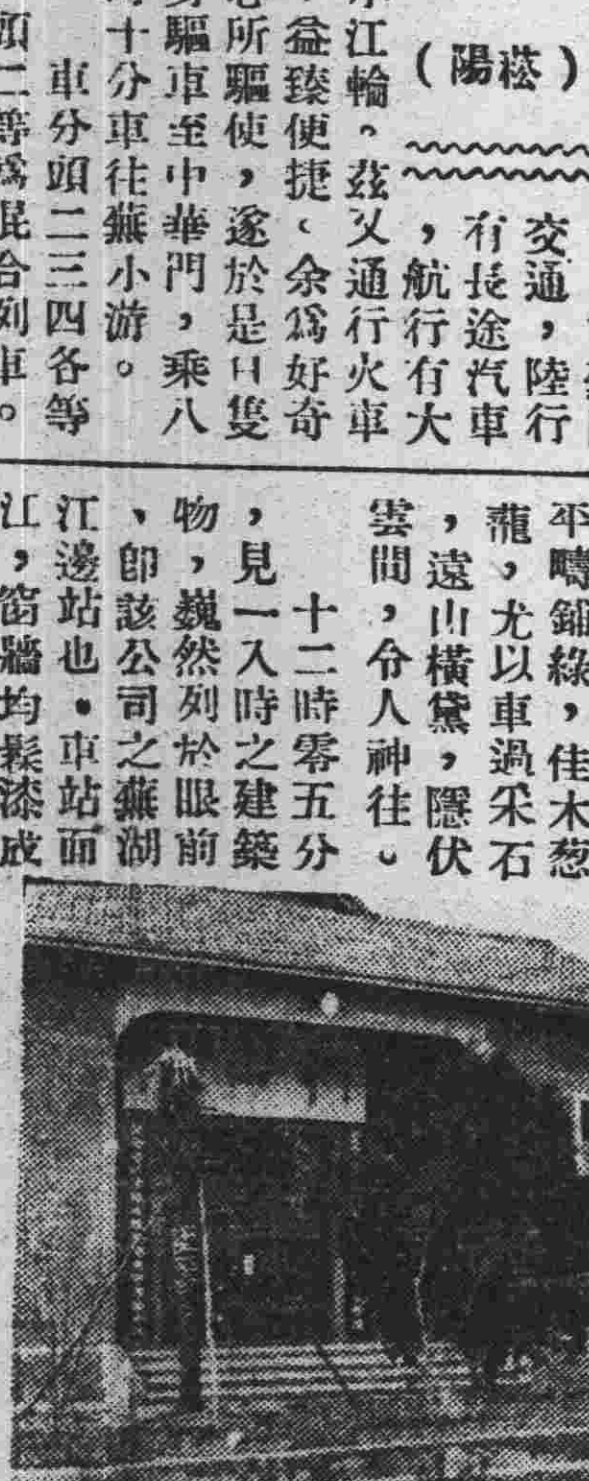 (菘陽)
交通,陸行
有長途汽車
,航行有大
江輪。茲又通行火車
益臻便捷、余爲好奇
所驅使,遂於是日隻
驅車至中華門,乘八
十分車往蕪小游。
車分頭二三四各等
頭二等爲混合列車。
平疇鋪綠,佳木葱
蘢,尤以車過采石
,遠山橫黛,隱伏
雲間,令人神往。
十二時零五分
,見一入時之建築
物,巍然列於眼前
、卽該公司之蕪湖
江邊站也。車站面
江,窗牆均髹漆成